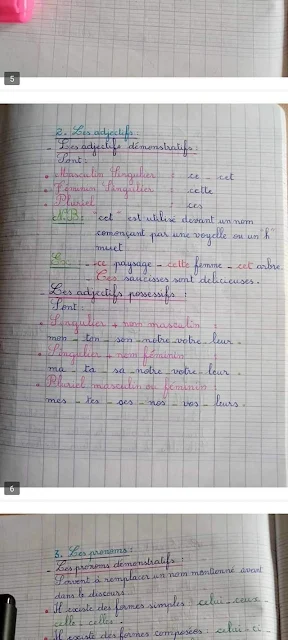 5
2. Les adjectifs.
- Les adjectifs démonstratifs :
Sont :
• Masculin Singulier : ce - cet
• Féminin Singulier : cette
• Pluriel : ces
N.B : "cet" est utilisé devant un nom
començant par une voyelle ou un "h"
muet.
Ex : - ce paysage - cette femme - cet arbre
Ces saucisses sont délicieuses.
Les adjectifs possessifs :
Sont :
• Singulier + nom masculin
mon - ton - son - notre - votre - leur.
• Singulier + nom féminin
ma - ta - sa - notre - votre - leur.
• Pluriel masculin ou féminin
mes - tes - ses - nos - vos - leurs.
6
3. Les pronoms :
- Les pronoms démonstratifs :
Servent à remplacer un nom mentionné avant
dans le discours.
• Il existe des formes simples : celui - ceux -
celle - celles -
• Il existe des formes composées : celui - ci -